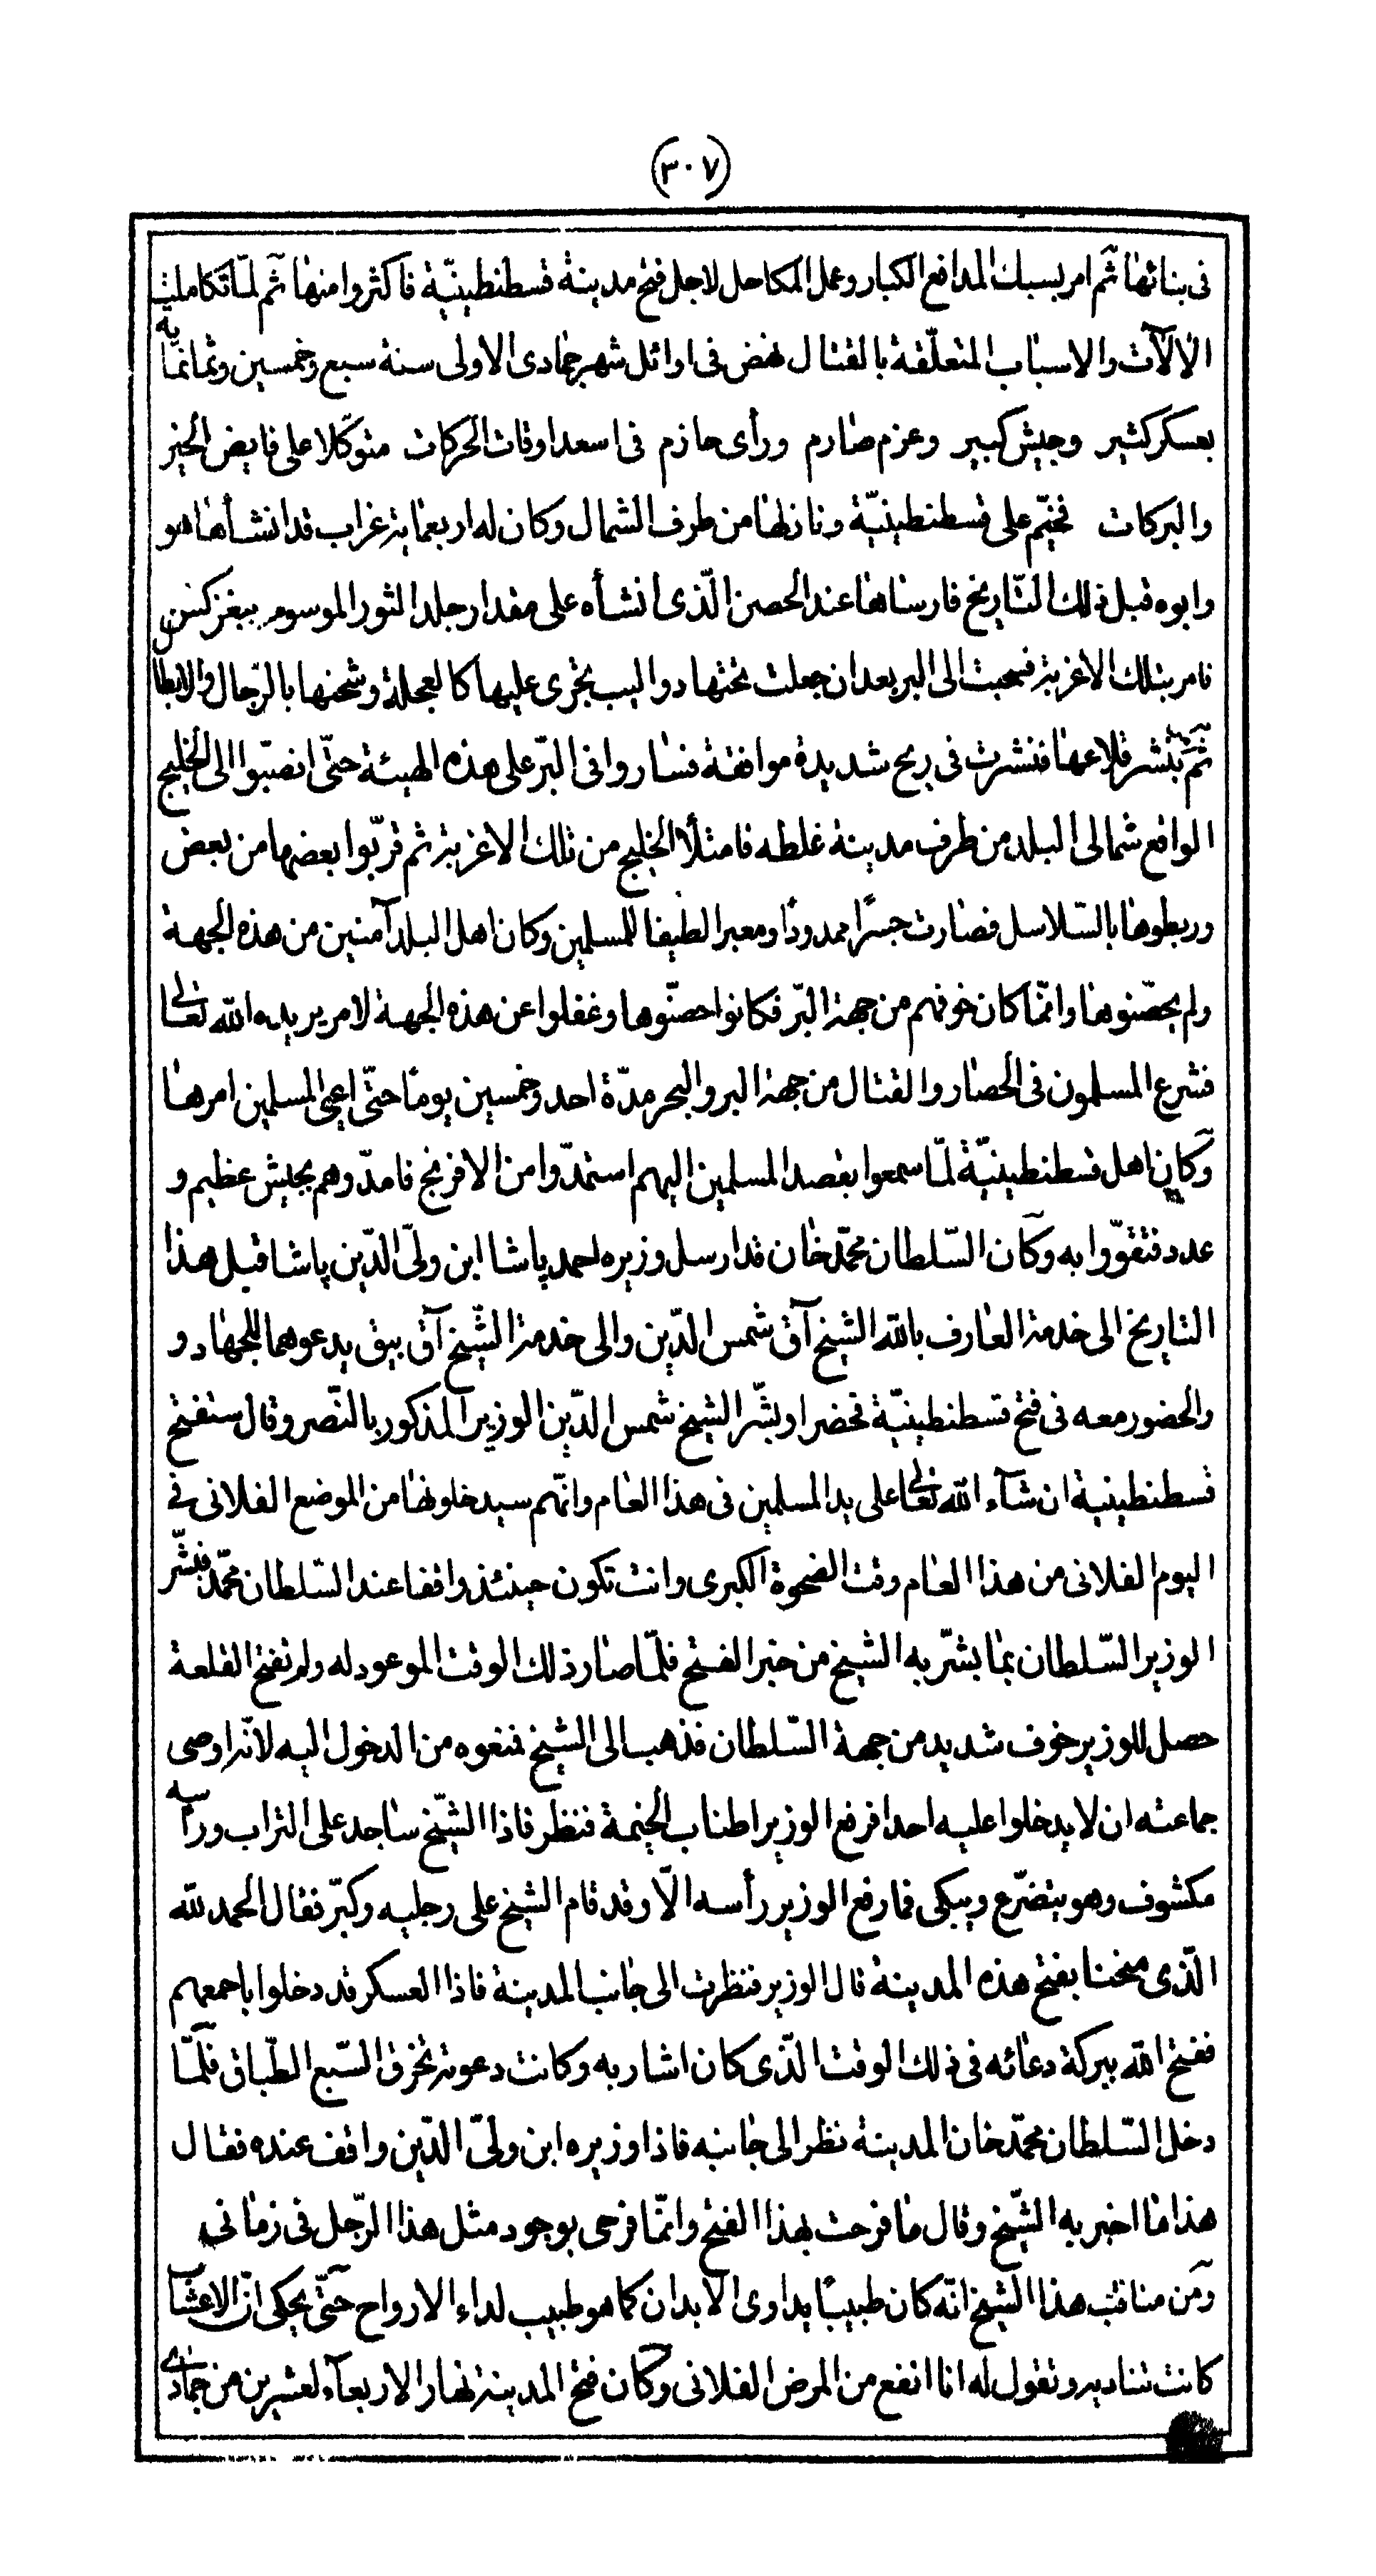 (٣٠٧)
فى بنائها ثم امر بسبك المدافع الكبار وعمل المكاحل لاجل فتح مدينة قسطنطينيّة فاكثروا منها ثم لمّا تكاملت
الالآت والاسباب المتعلّقة بالقتال نهض فى اوائل شهر جمادى الاولى سنة سبع وخمسين وثمانمايه
بعسكر كثير وجيش كبير وعزم صارم ورأى حازم فى اسعد اوقات الحركات متوكّلا على فايض الخير
والبركات فخيّم على قسطنطينيّة ونازلها من طرف الشمال وكان له اربعماية غراب قد انشأها هو
وابوه قبل ذلك التّاريخ فارساها عند الحصن الّذى انشأه على مقدار جلد الثور الموسوم ببغزكسن
فامر بتلك الاغربة فسحبت الى البر بعد ان جعلت تحتها دواليب تجرى عليها كالعجلة وشحنها بالرّجال والابطال
ثم بنشر قلاعها فنشرت فى ريح شديدة موافقة فساروا فى البرّ على هذه الهيئة حتّى انصبّوا الى الخليج
الواقع شمالى البلد من طرف مدينة غلطه فامتلأ الخليج من تلك الاغربة ثم قربّوا بعضها من بعض
وربطوها بالسّلاسل فصارت جسرًا ممدودًا ومعبرا لطيفا للمسلمين وكان اهل البلد آمنين من هذه الجهة
ولم يحصّنوها وانّما كان خوفهم من جهة البرّ فكانوا حصنّوها وغفلوا عن هذه الجهة لامر يريده الله تعالى
فشرع المسلمون فى الحصار والقتال من جهة البر والبحر مدّة احد وخمسين يومًا حتّى اعيى المسلمين امرها
وكان اهل قسطنطينيّة لمّا سمعوا بقصد المسلمين اليهم استمدّوا من الافرنج فامدّوهم بجيش عظيم و
عدد فتقوّوا به وكان السّلطان محمّد خان قد ارسل وزيره احمد پاشا ابن ولىّ الدّين پاشا قبل هذا
التاريخ الى خدمة العارف بالله الشيخ آق شمس الدّين والى خدمة الشّيخ آق بيق يدعوهما للجهاد و
والحضور معه فى فتح قسطنطينيّة فحضرا وبشّر الشيخ شمس الدّين الوزير المذكور بالنّصر وقال ستفتح
قسطنطينية ان شآء الله تعالى على يد المسلمين فى هذا العام وانّهم سيدخلونها من الموضع الفلانى فى
اليوم الفلانى من هذا العام وقت الضحوة الكبرى وانت تكون حينئذ واقفا عند السّلطان محمّد فبشّر
الوزير السّلطان بما بشّر به الشيخ من خبر الفتح فلمّا صار ذلك الوقت الموعود له ولم تفتح القلعة
حصل للوزير خوف شديد من جهة السّلطان فذهب الى الشيخ فمنعوه من الدخول اليه لانّه اوصى
جماعته ان لا يدخلوا عليه احدا فرفع الوزير اطناب الخيمة فنظر فاذا الشّيخ ساجد على التراب ورأسه
مكشوف وهو يتضرّع ويبكى فما رفع الوزير رأسه الّا وقد قام الشيخ على رجليه وكبّر فقال الحمد لله
الّذى منحنا بفتح هذه المدينة قال الوزير فنظرت الى جانب المدينة فاذا العسكر قد دخلوا باجمعهم
ففتح الله ببركة دعائه فى ذلك الوقت الّذى كان اشار به وكانت دعوته تخرق السّبع الطّباق فلمّا
دخل السّلطان محمّد خان المدينة نظر الى جانبه فاذا وزيره ابن ولىّ الدّين واقف عنده فقال
هذا ما اخبر به الشّيخ وقال ما فرحت بهذا الفتح وانّما فرحى بوجود مثل هذا الرّجل فى زمانى
ومن مناقب هذا الشيخ انّه كان طبيبًا يداوى الابدان كما هو طبيب لداء الارواح حتّى يحكى انّ الاعشاب
كانت تناديه وتقول له انا انفع من المرض الفلانى وكان فتح المدينة نهار الاربعآء لعشرين من جمادى